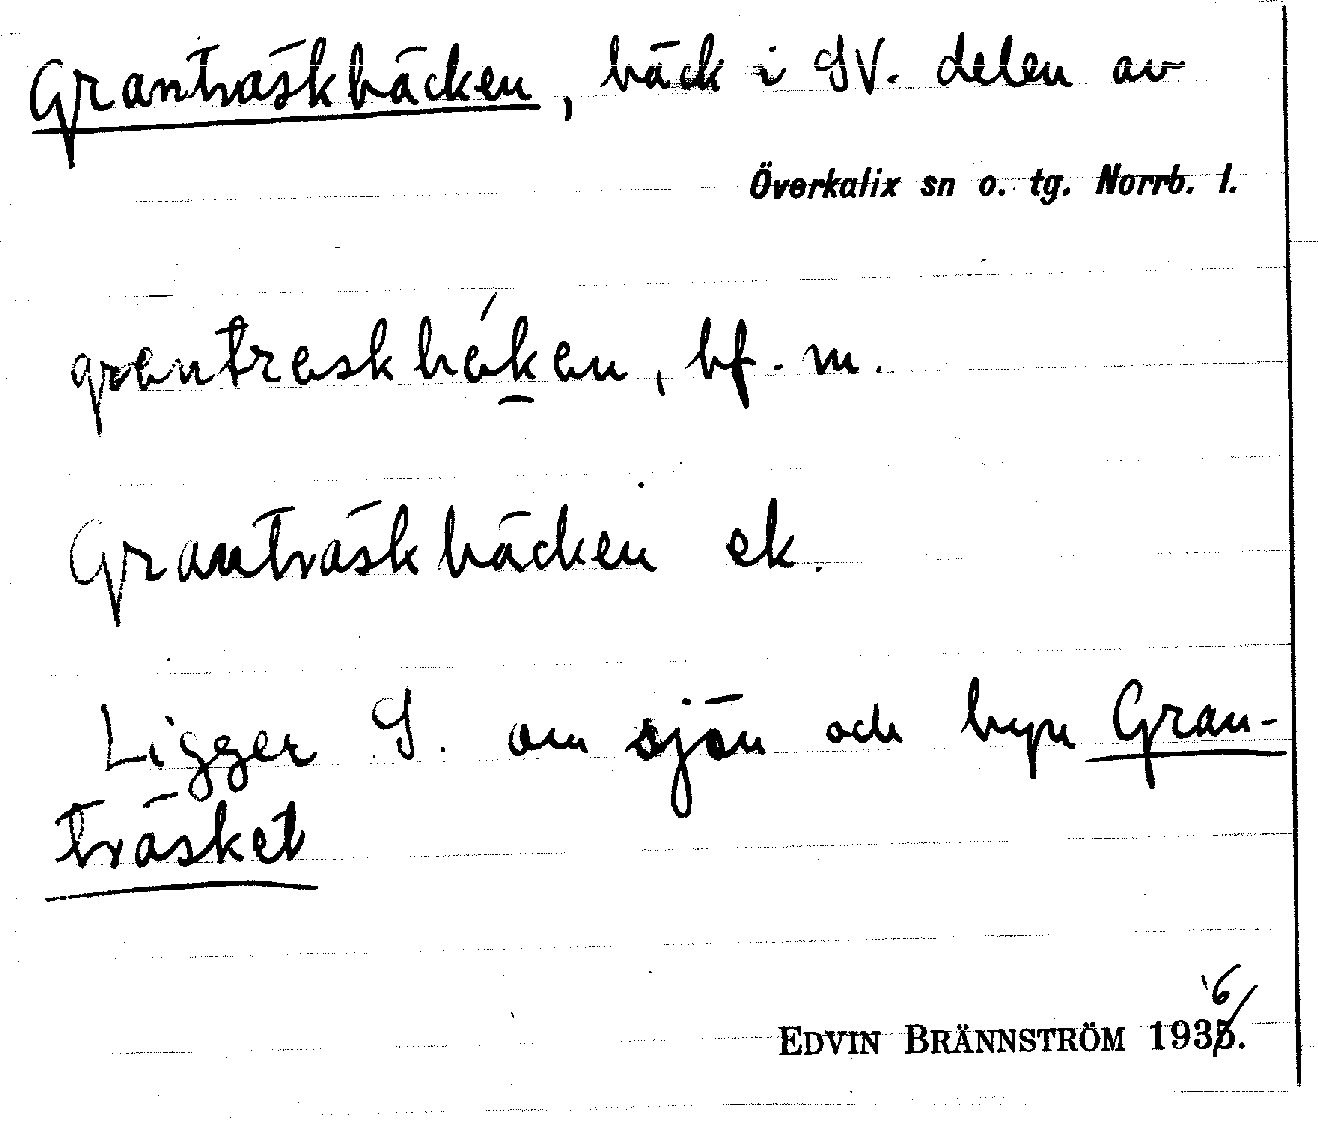 Granträskbäcken, bäck i SV. delen av
Överkalix sn o. tg. Norrb. l.
grantreskbéken, bf. m.
Granträskbäcken ek.
Ligger S. om sjön och byn Gran-
träsket
EDVIN BRÄNNSTRÖM 1936.